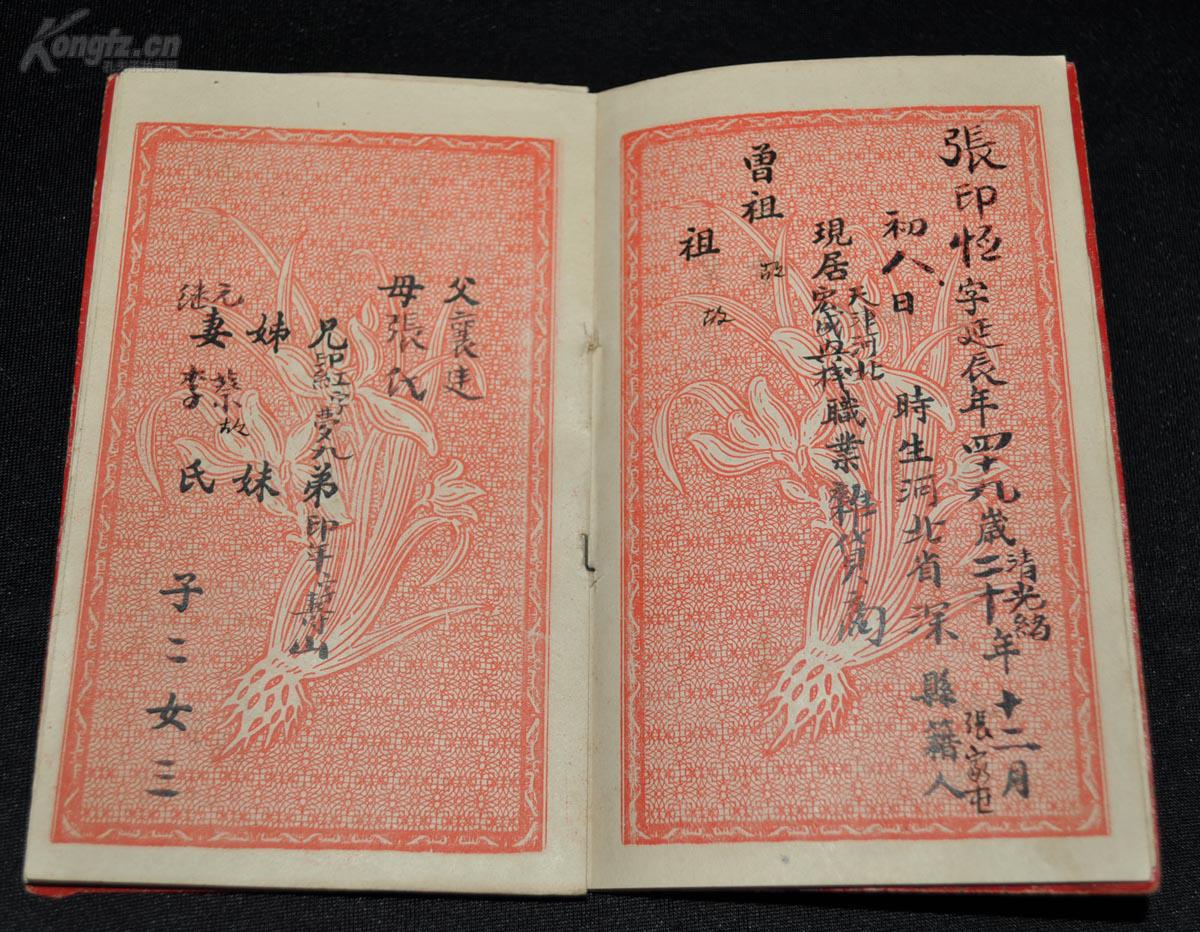 Kongfz.cn
張印恆字延辰年四十九歲清光緒二十年十二月
初八日 時生河北省深縣籍人張家屯
現居天津河北宏盛貨棧職業雜貨商
曾祖 故
祖 故
父襄廷
母張氏
兄印紅字夢九弟印年字壽山
姊 妹
元繼妻 故 李氏
子二女三